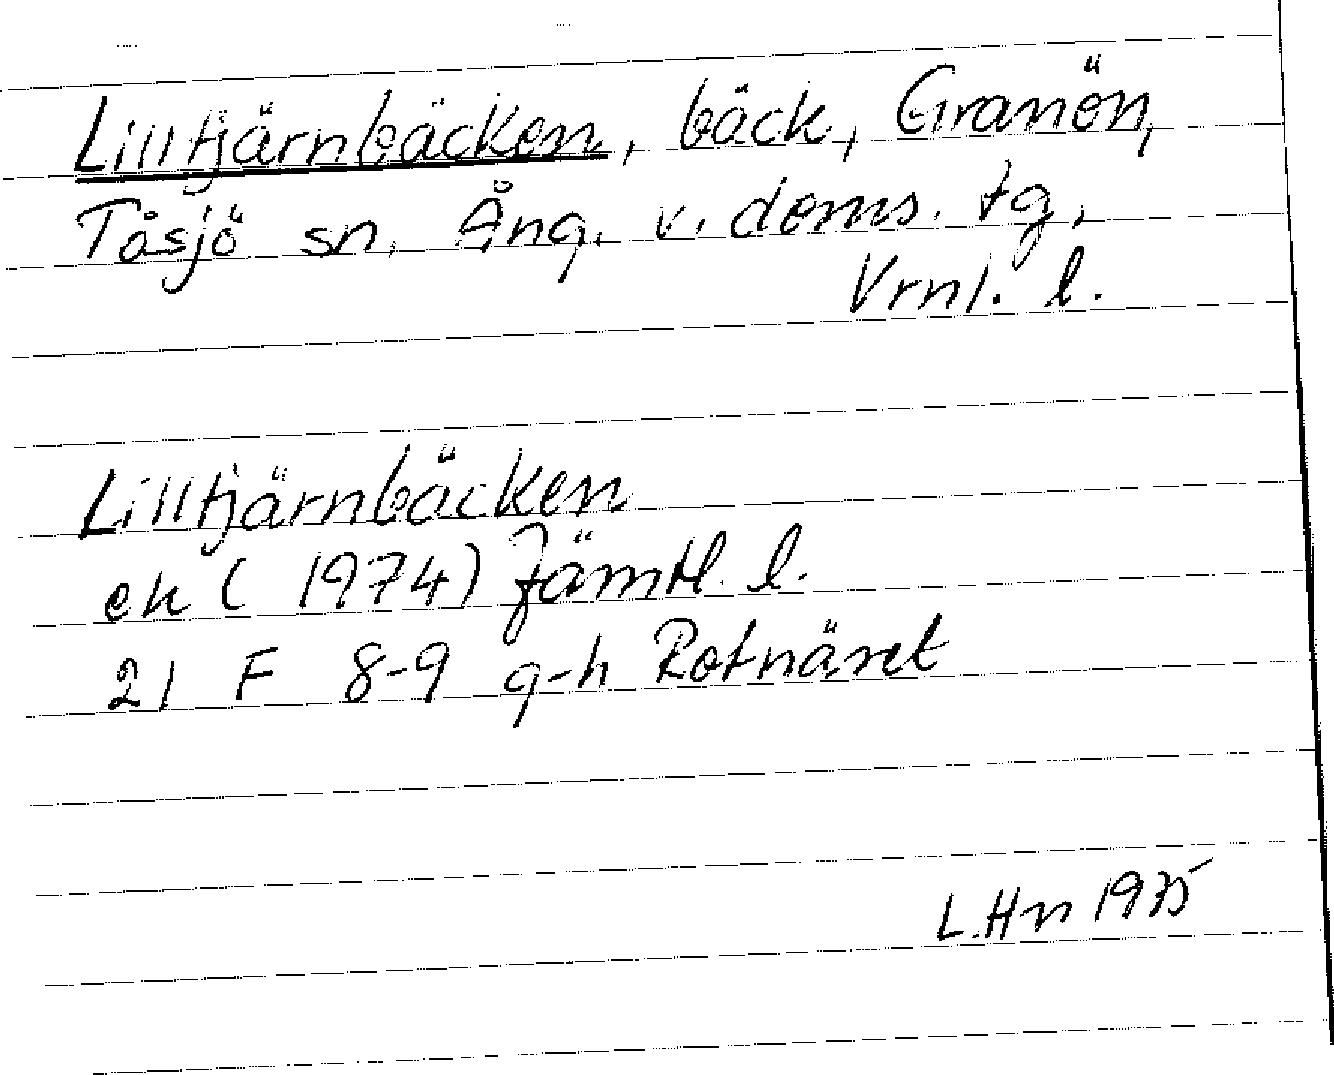 Lilltjärnbäcken, bäck, Granön,
Tåsjö sn, Ång. v. doms. tg,
Vrnl. l.
Lilltjärnbäcken
ek (1974) Jämtl. l.
21 F 8-9 g-h Rotnäset
L.Hn 1975